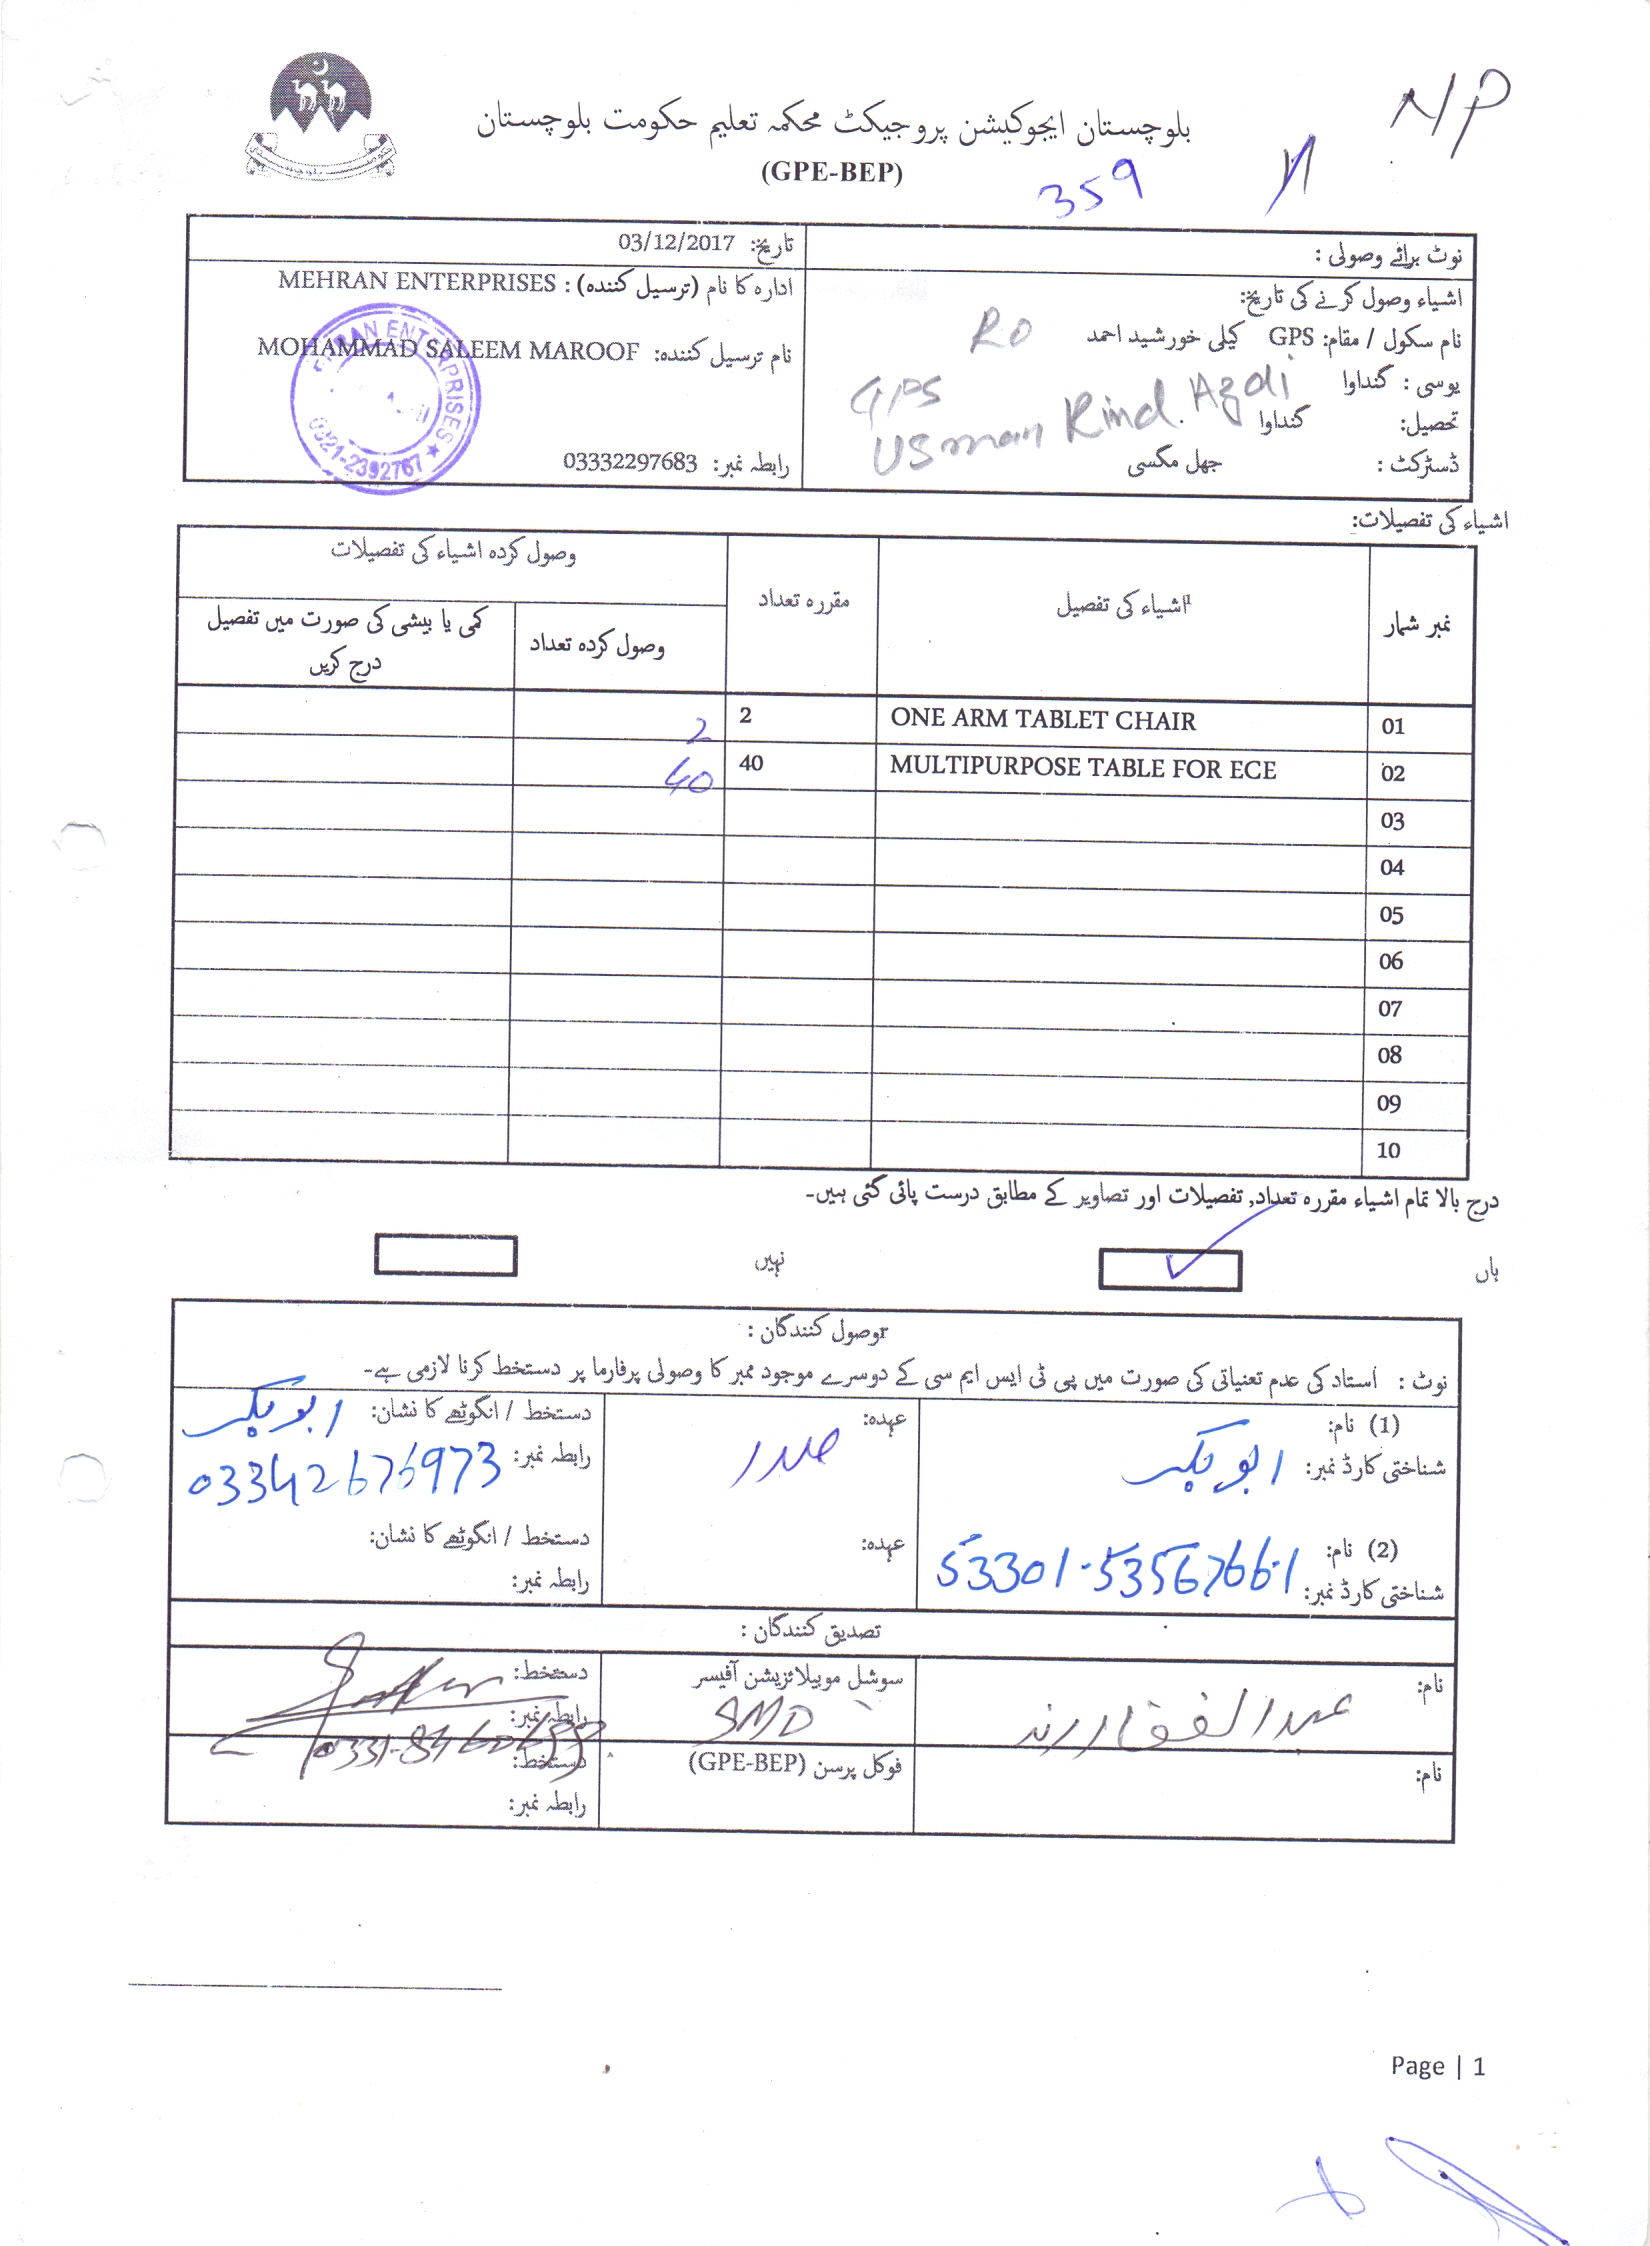 بلوچستان ایجوکیشن پروجیکٹ محکمہ تعلیم حکومت بلوچستان
(GPE-BEP)
NP
359
نوٹ برائے وصولی :
تاریخ: 03/12/2017
اشیاء وصول کرنے کی تاریخ:
نام سکول / مقام: GPS کیلی خورشید احمد
RO
یوسی : گنداوا
GPS
Usman Rind Azdi
تحصیل: گنداوا
ڈسٹرکٹ : جھل مگسی
ادارہ کا نام (ترسیل کنندہ) : MEHRAN ENTERPRISES
نام ترسیل کنندہ: MOHAMMAD SALEEM MAROOF
رابطہ نمبر: 03332297683
MEHRAN ENTERPRISES ★ 0321-2392767
اشیاء کی تفصیلات:
نمبر شمار
اشیاء کی تفصیل
مقررہ تعداد
وصول کردہ اشیاء کی تفصیلات
وصول کردہ تعداد
کمی یا بیشی کی صورت میں تفصیل
درج کریں
01 ONE ARM TABLET CHAIR 2 2
02 MULTIPURPOSE TABLE FOR ECE 40 40
03
04
05
06
07
08
09
10
درج بالا تمام اشیاء مقررہ تعداد, تفصیلات اور تصاویر کے مطابق درست پائی گئی ہیں۔
ہاں ✓
نہیں
وصول کنندگان :
نوٹ : استاد کی عدم تعنیاتی کی صورت میں پی ٹی ایس ایم سی کے دوسرے موجود ممبر کا وصولی پرفارما پر دستخط کرنا لازمی ہے۔
(1) نام: ابوبکر
شناختی کارڈ نمبر:
عہدہ: صدر
دستخط / انگوٹھے کا نشان: ابوبکر
رابطہ نمبر: 03342676973
(2) نام:
شناختی کارڈ نمبر: 53301-5356766-1
عہدہ:
دستخط / انگوٹھے کا نشان:
رابطہ نمبر:
تصدیق کنندگان :
نام: عبدالغفار رند
سوشل موبیلائزیشن آفیسر
SMO
دستخط:
رابطہ نمبر:
نام:
فوکل پرسن (GPE-BEP)
دستخط:
رابطہ نمبر:
Page | 1